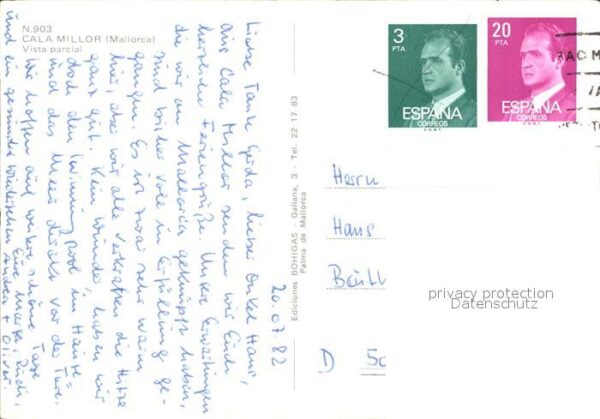 N.903
CALA MILLOR (Mallorca)
Vista parcial
20.07.82
Liebe Tante Gerda, lieber Onkel Hans,
aus Cala Millor senden wir Euch
herzliche Feriengrüße. Unsere Erwartungen
die wir an Mallorca geknüpft haben,
sind bisher voll in Erfüllung ge-
gangen. Es ist zwar sehr warm
hier, aber wir alle verkraften die Hitze
ganz gut. Kein Wunder, haben wir
doch den Swimming pool im Hause
und das Meer direkt vor der Türe.
Wir hoffen auf weitere schöne Tage
und ein gesundes Wiedersehen
Eure
+ Oliver.
Ediciones BOHIGAS - Gallena, 3 - Tel. 22 17 83
Palma de Mallorca
3
PTA
ESPAÑA
CORREOS
20
PTA
ESPAÑA
CORREOS
Herrn
Hans
D 50
privacy protection
Datenschutz